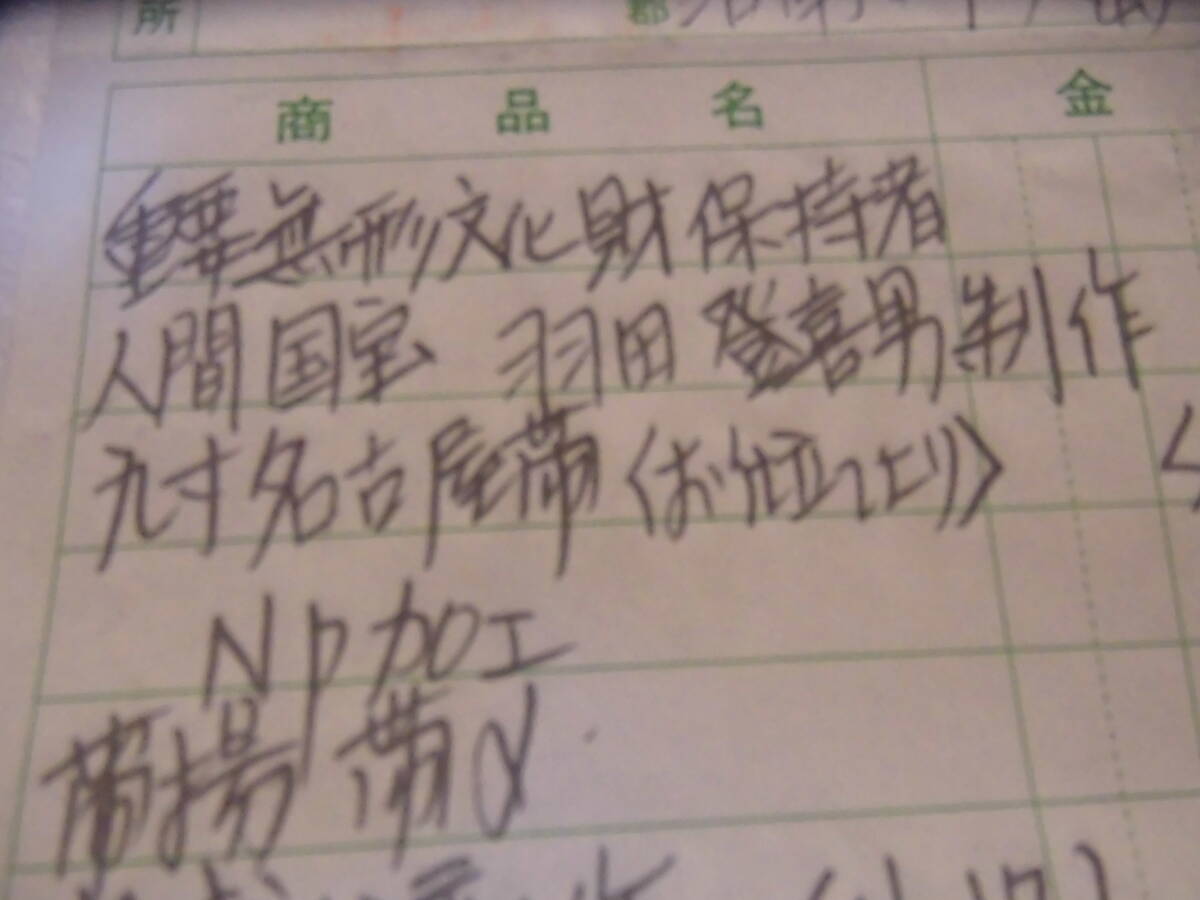 所 郡
商品名 金
重要無形文化財保持者
人間国宝 羽田登喜男制作
九寸名古屋帯〈お仕立上り〉
NP加工
帯揚 帯〆